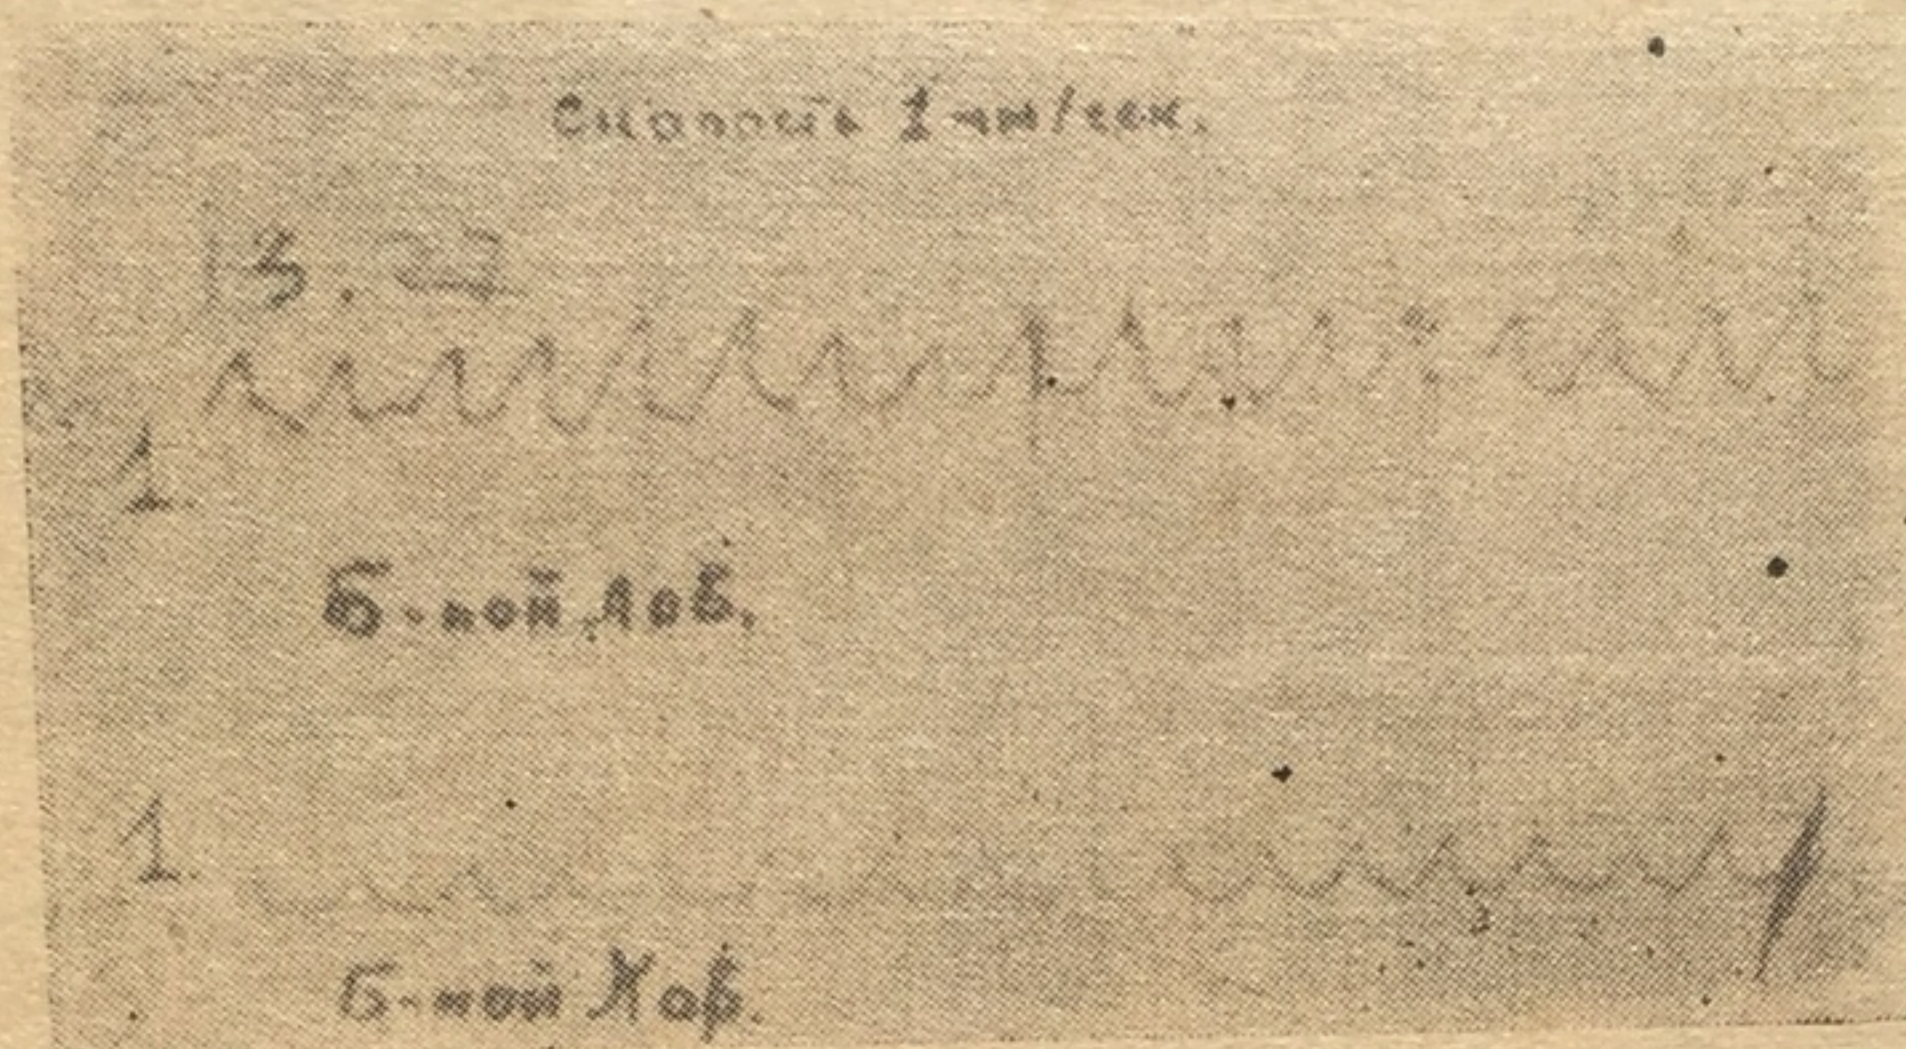 Скорость 1 мм/сек.
13.27
1
Б-ной Лов.
1.
Б-ной Хар.